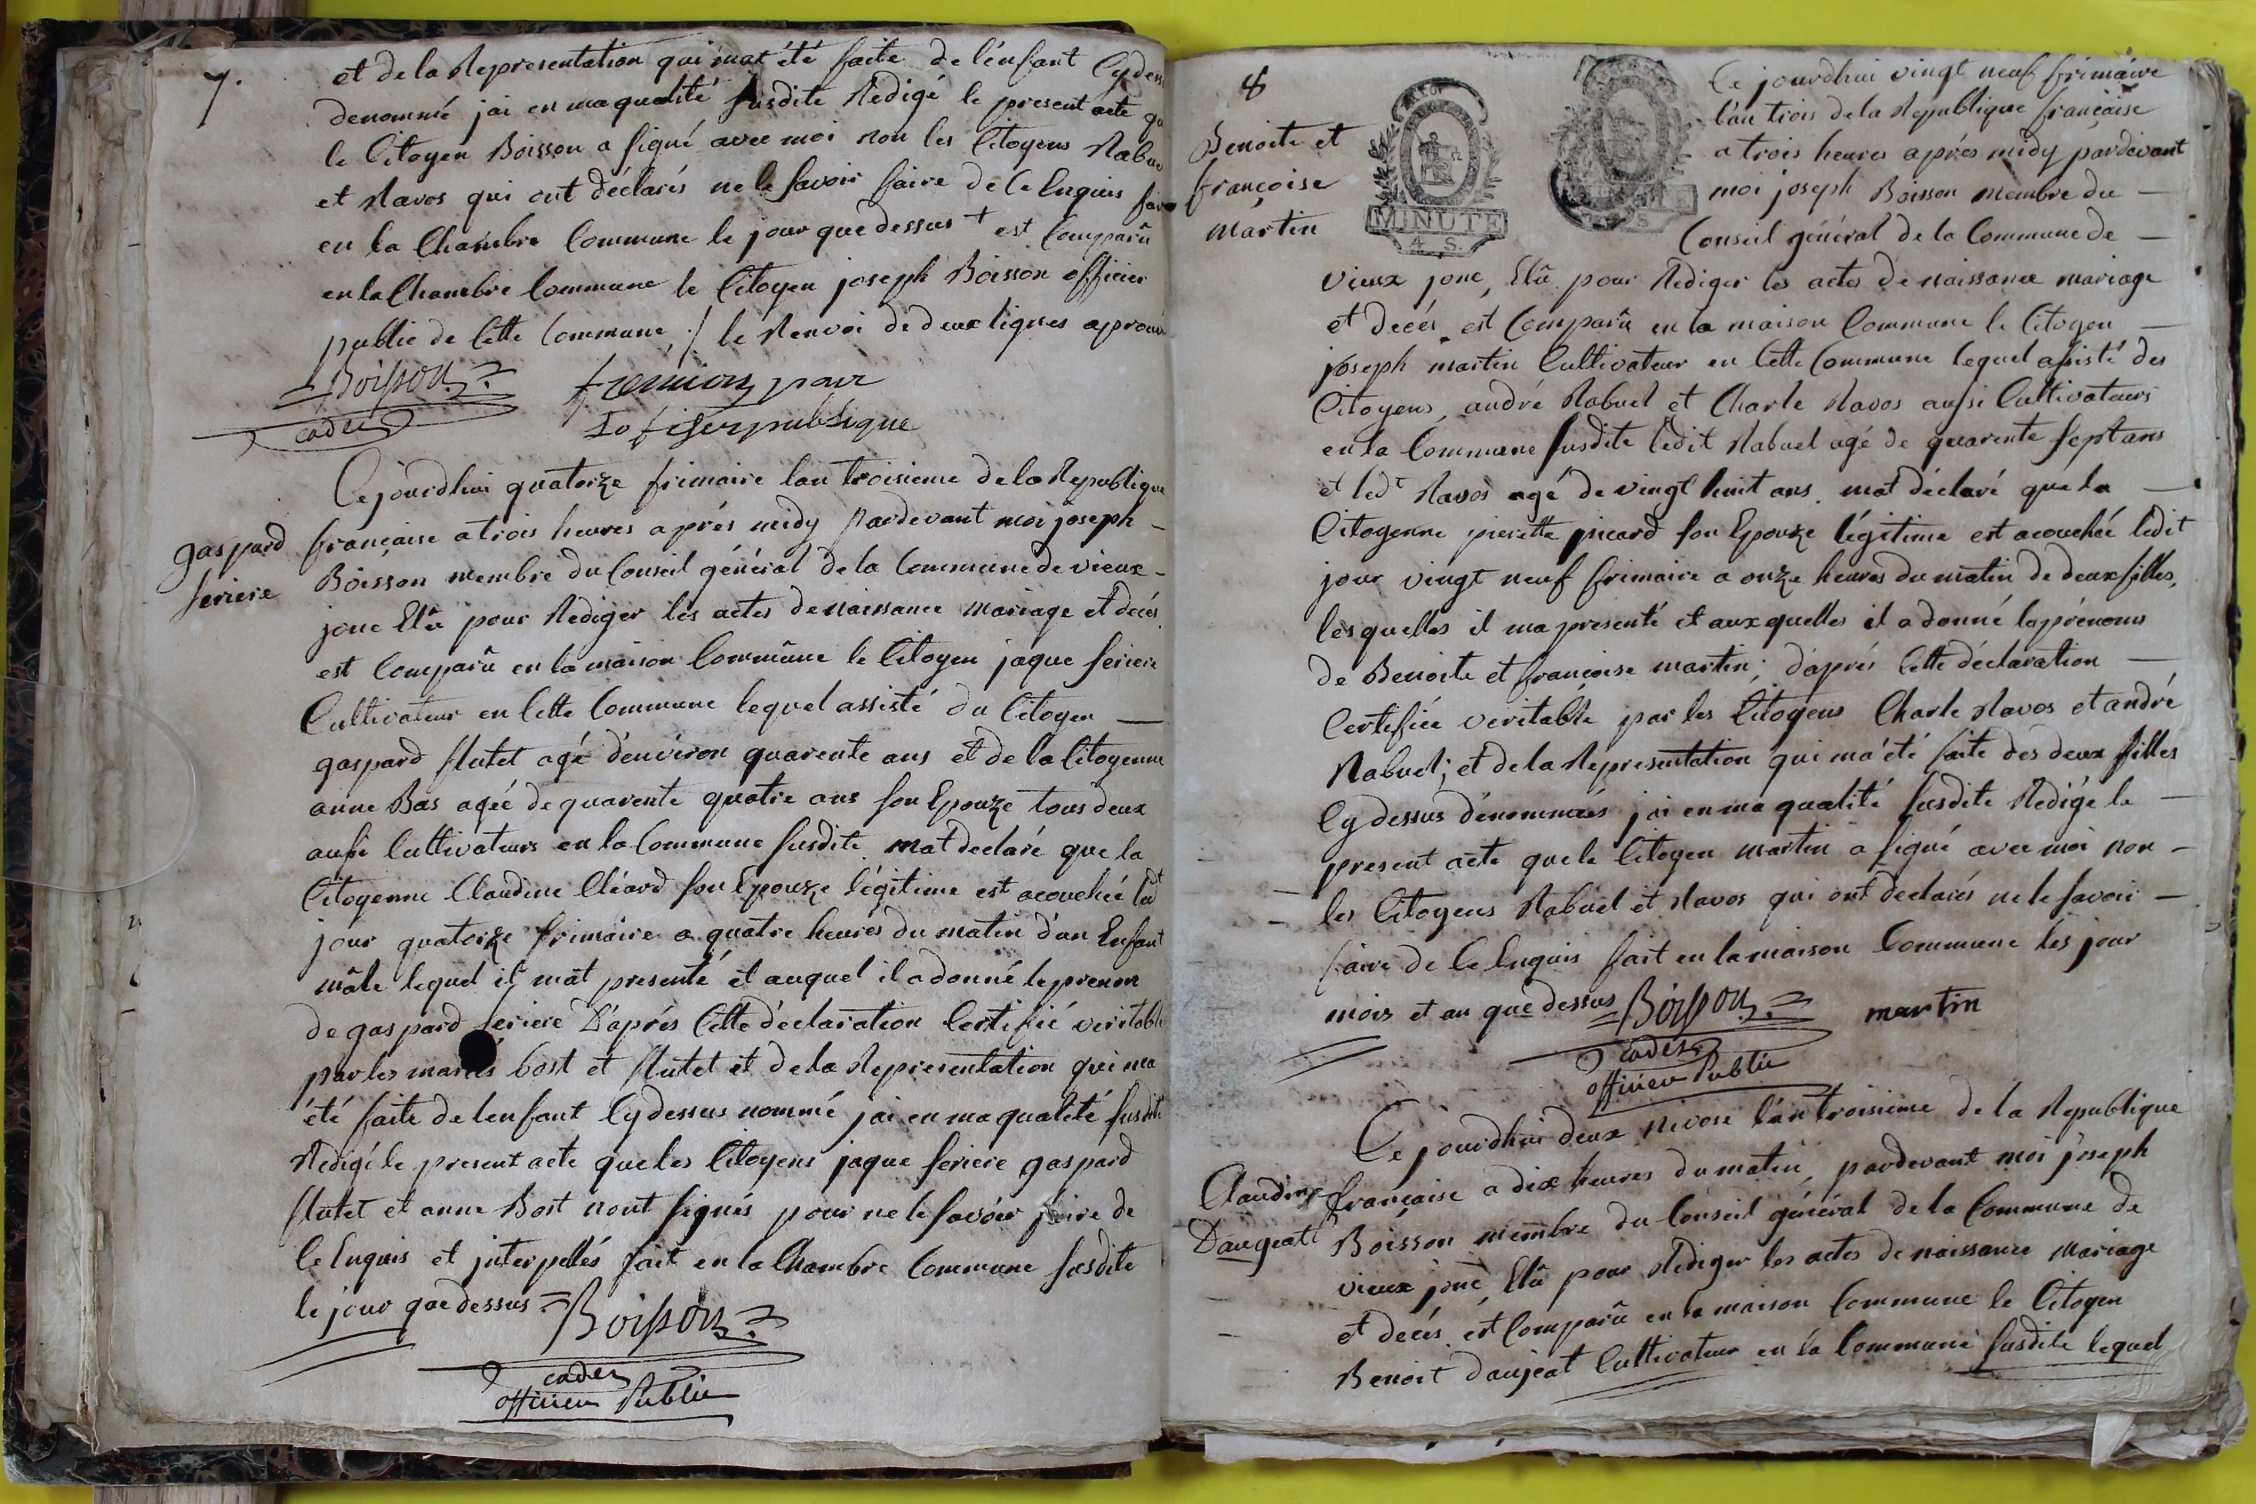 7.
et de la Representation qui mat été faite de lénfant Cydess
denommé jai en ma qualité susdite Redigé le present acte q
le Citoyen Boisson a signé avec moi non les Citoyens Rabue
et Ravos qui ont déclarés ne le savoir faire de Ce Enquis fai
en la Chambre Commune le jour que dessus + est Comparû
en la Chambre Commune le Citoyen joseph Boisson officier
public de Cette Commune ./. le Renvoi de deux lignes aprouv
Boisson
cadet
fremion pair
Lofiser publique
gaspard
seriere
Ce jourdhui quatorze frimaire lan troisieme de la Republique
française a trois heures aprés midy pardevant moi joseph -
Boisson membre du Conseil général de la Commune de vieux -
jonc Elû pour Rediger les actes de naissance mariage et decés
est Comparû en la maison Commûne le Citoyen jaque seriere
Cultivateur en Cette Commune lequel assisté du Citoyen —
gaspard flutet agé denviron quarente ans et de la Citoyenne
anne Bas agée de quarente quatre ans son Epouze tous deux
aussi Cultivateurs en la Commune susdite mat declaré que la
Citoyenne Claudine Cléard son Epouze légitime est acouchée led
jour quatorze frimaire a quatre heures du matin d'un Enfant
mâle lequel il mat presenté et auquel il a donné le prenom
de gaspard seriere D'aprés Cette déclaration Certifié veritable
par les mariés bost et flutet et de la Representation qui ma
été faite de lenfant Cydessus nommé jai en ma qualité susdite
Redigé le present acte que les Citoyens jaque seriere gaspard
flutet et anne Bost nont signés pour ne le savoir faire de
Ce Enquis et interpellés fait en la Chambre Commune susdite
le jour que dessus
Boisson
cadet
officier Public
8
MINUTE
4. S.
Benoite et
françoise
martin
Ce jourdhui vingt neuf frimaire
lan trois de la Republique française
a trois heures aprés midy pardevant
moi joseph Boisson membre du —
Conseil général de la Commune de —
vieux jonc, Elû pour Rediger les actes de naissance mariage
et decés est Comparû en la maison Commune le Citoyen —
joseph martin Cultivateur en Cette Commune lequel assisté des
Citoyens, andré Rabuel et Charle Ravos aussi Cultivateurs
en la Commune susdite ledit Rabuel agé de quarente sept ans
et ledt Ravos agé de vingt huit ans mat déclaré que la —
Citoyenne pierette picard son Epouze légitime est acouchée ledit
jour vingt neuf frimaire a onze heures du matin de deux filles,
lesquelles il ma presenté et auxquelles il a donné les prénoms
de Benoite et françoise martin; d'aprés Cette déclaration —
Certifiée veritable par les Citoyens Charle Ravos et andré
Rabuel; et de la Representation qui ma été faite des deux filles
Cydessus dénommées jai en ma qualité susdite Redigé le —
present acte que le Citoyen martin a signé avec moi non -
les Citoyens Rabuel et Ravos qui ont declarés ne le savoir —
faire de Ce Enquis fait en la maison Commune les jour
mois et an que dessus
Boisson
martin
cadet
officier Public
Claudine
Daugeat
Ce jourdhui deux nivose l'an troisieme de la Republique
française a dix heures du matin, pardevant moi joseph
Boisson membre du Conseil général de la Commune de
vieux jonc, Elû pour Rediger les actes de naissance mariage
et decés est Comparû en la maison Commune le Citoyen
Benoit daujeat Cultivateur en la Commune susdite lequel